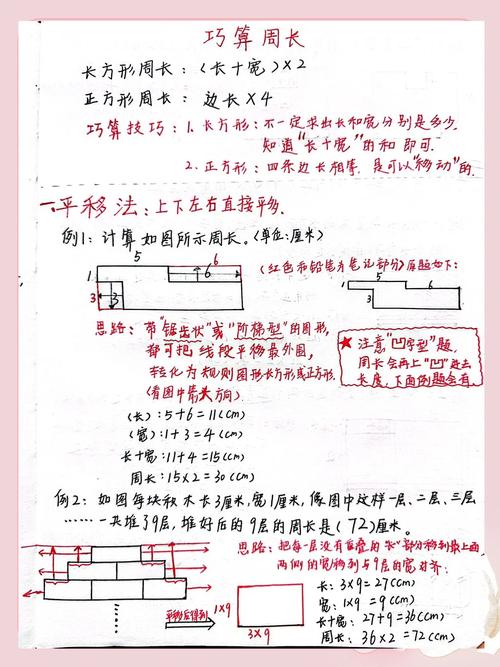 巧算周长
长方形周长：（长+宽）×2
正方形周长： 边长×4
巧算技巧：1.长方形：不一定求出长和宽分别是多少，
知道“长+宽”的和即可.
2.正方形：四条边长相等，是可以“移动”的.
一.平移法：上下左右直接平移.
例1：计算如图所示周长。（单位：厘米）
5 6
1 6
3 3
（红色和铅笔为笔记部分）原题如下：
5
1 6
3
思路：带“锯齿状”或“阶梯型”的图形，
都可把线段平移最外围，
转化为规则图形长方形或正方形.
（看图中箭头方向）
★注意“凹字型”题，
周长会再上“凹”进去
长度，下面例题会有
（长）：5+6=11（cm）
（宽）：1+3=4（cm）
长+宽：11+4=15（cm）
周长：15×2=30（cm）
例2：如图每块积木长3厘米，宽1厘米，像图中这样一层、二层、三层
……一共堆了9层，堆好后的9层的周长是（72）厘米。
思路：把每一层没有重叠的“长”部分移到最上面
两侧的宽移到与9层的宽对齐.
平移后得到
1×9
3×9
长：3×9=27（cm）
宽：1×9=9（cm）
长+宽：27+9=36（cm）
周长：36×2=72（cm）